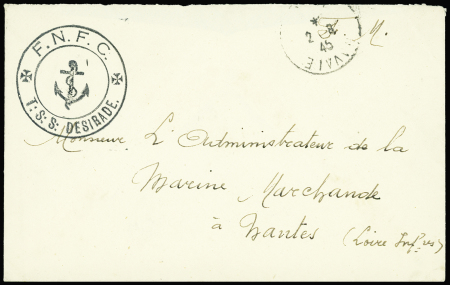 F. N. F. C.
T. S. S. DESIRADE.
2
45
M.
Monsieur L'Administrateur de la
Marine Marchande
à Nantes (Loire Infre)